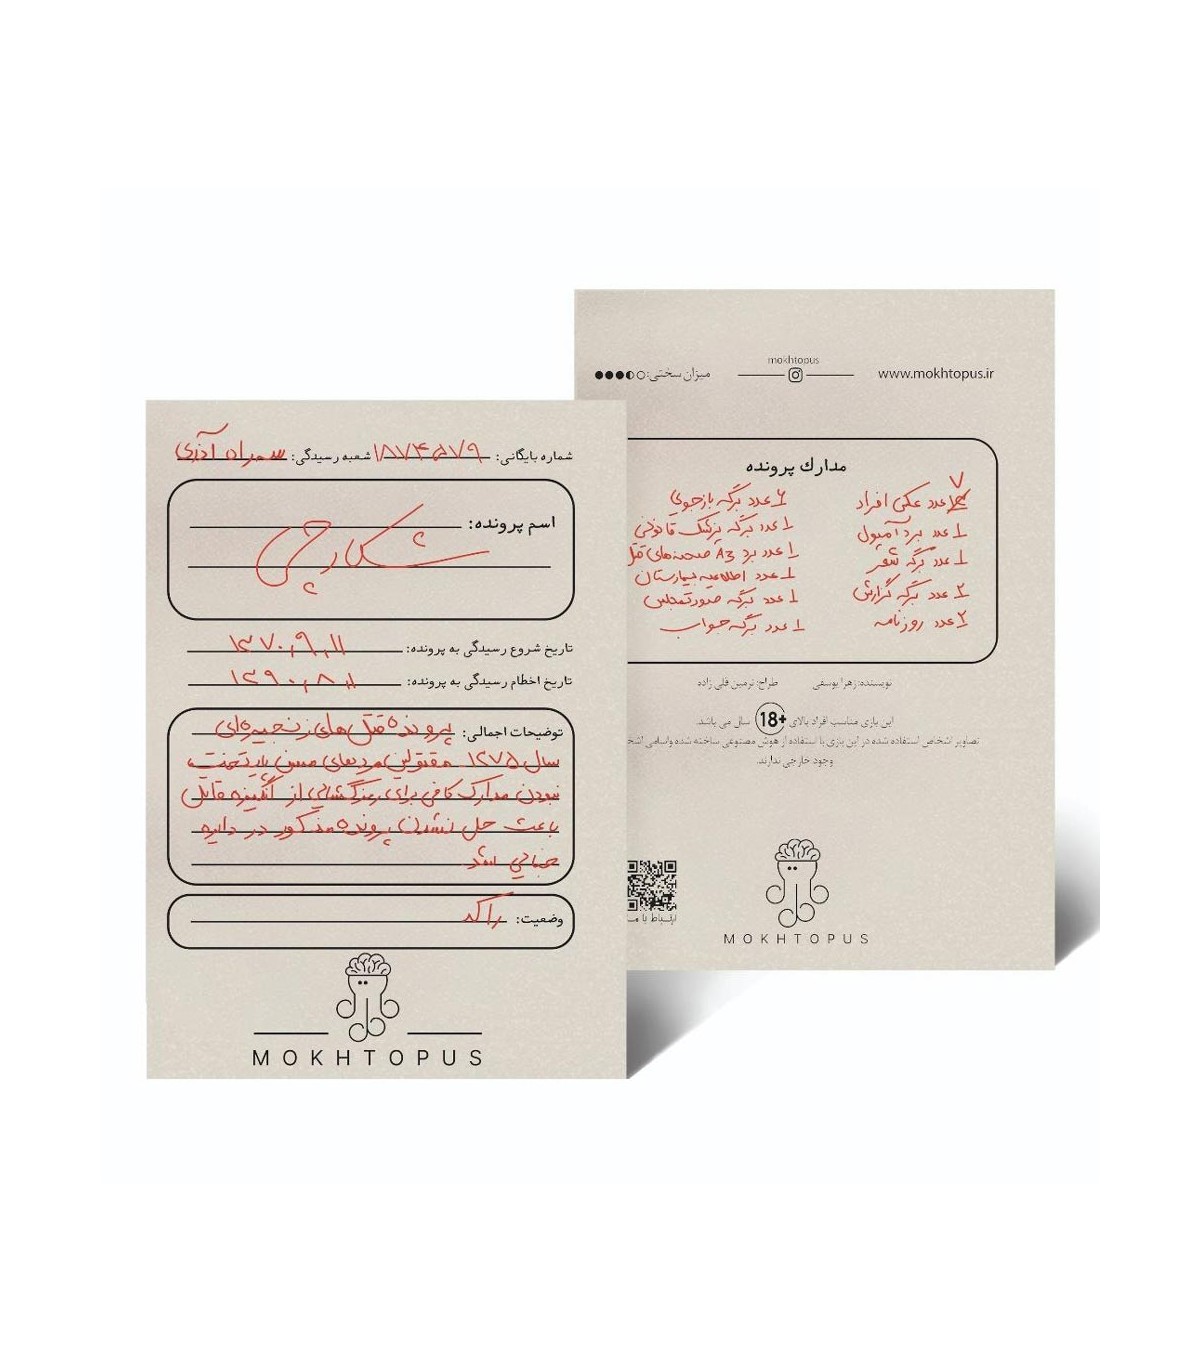 شماره بایگانی: ۱۸۷۴۵۷۹ شعبه رسیدگی: سهراه آذری
اسم پرونده:
شکارچی
تاریخ شروع رسیدگی به پرونده: ۱۳۷۰,۹,۱۱
تاریخ اخطام رسیدگی به پرونده: ۱۳۹۰,۸,۱
توضیحات اجمالی: پرونده قتل های زنجیره‌ای
سال ۱۳۷۵ مقتولین مردهای مسن پایتخت،
نبودن مدارک کافی برای رمزگشایی از انگیزه قاتل
باعث حل نشدن پرونده مذکور در دایره
جنایی شد
وضعیت: راکد
MOKHTOPUS
www.mokhtopus.ir
mokhtopus
میزان سختی:
مدارک پرونده
۷
عدد عکس افراد
۱ عدد برد آمپول
۱ عدد برگه شعر
۲ عدد برگه گزارش
۲ عدد روزنامه
۶ عدد برگه بازجویی
۱ عدد برگه پزشک قانونی
۱ عدد برد A3 صحنه‌های قتل
۱ عدد اطلاعیه بیمارستان
۱ عدد برگه صورتمجلس
۱ عدد برگه جواب
نویسنده: زهرا یوسفی طراح: نرمین قلی زاده
این بازی مناسب افراد بالای +18 سال می باشد.
تصاویر اشخاص استفاده شده در این بازی با استفاده از هوش مصنوعی ساخته شده واسامی
وجود خارجی ندارند.
ارتباط با
MOKHTOPUS